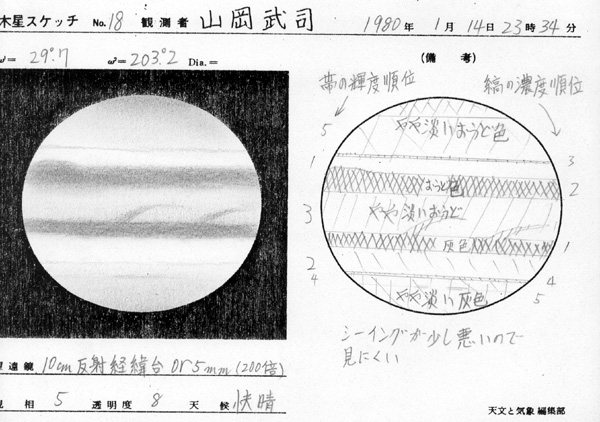 木星スケッチ No.18 観測者 山岡武司 1980年 1月 14日 23時 34分
ω¹= 29°.7 ω²= 203°.2 Dia.=
(備 考)
帯の輝度順位 縞の濃度順位
5 やや淡いおうど色
1 3
おうど色 2
3 やや淡いおうど
灰色 1
2
4 4
やや淡い灰色 5
シーイングが少し悪いので
見にくい
望遠鏡 10cm反射経緯台 Or5mm (200倍)
見 相 5 透明度 8 天 候 快晴
天文と気象 編集部